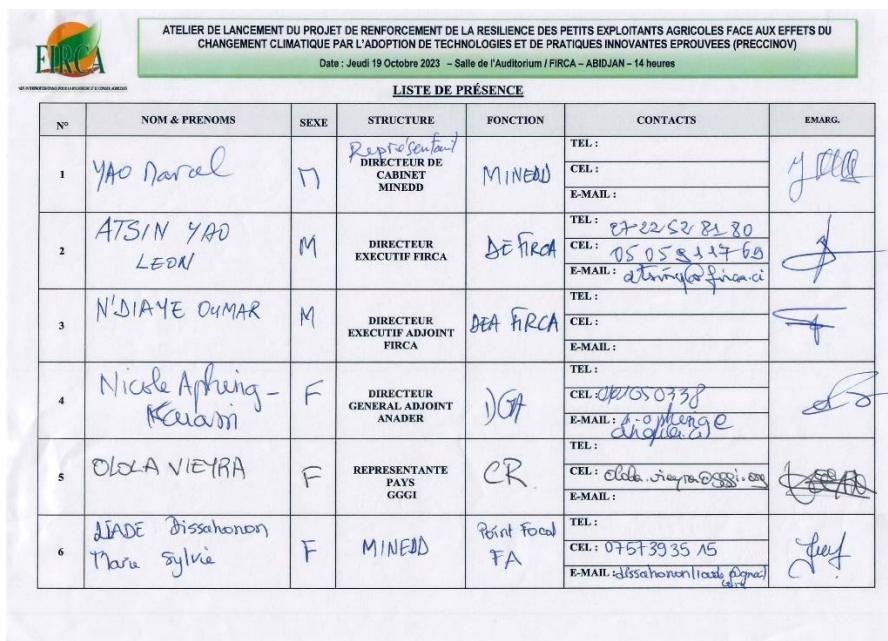 FIRCA
ATELIER DE LANCEMENT DU PROJET DE RENFORCEMENT DE LA RESILIENCE DES PETITS EXPLOITANTS AGRICOLES FACE AUX EFFETS DU
CHANGEMENT CLIMATIQUE PAR L'ADOPTION DE TECHNOLOGIES ET DE PRATIQUES INNOVANTES EPROUVEES (PRECCINOV)
Date : Jeudi 19 Octobre 2023 – Salle de l'Auditorium / FIRCA – ABIDJAN – 14 heures
LISTE DE PRÉSENCE
N° NOM & PRENOMS SEXE STRUCTURE FONCTION CONTACTS EMARG.
1 YAO Marcel M Représentant DIRECTEUR DE CABINET MINEDD MINEDD
TEL :
CEL :
E-MAIL :
2 ATSIN YAO LEON M DIRECTEUR EXECUTIF FIRCA DE FIRCA
TEL : 27 22 52 81 80
CEL : 05 05
E-MAIL :
3 N'DIAYE OUMAR M DIRECTEUR EXECUTIF ADJOINT FIRCA DEA FIRCA
TEL :
CEL :
E-MAIL :
4 Nicole F DIRECTEUR GENERAL ADJOINT ANADER DGA
TEL :
CEL :
E-MAIL :
5 OLOLA VIEYRA F REPRESENTANTE PAYS GGGI CR
TEL :
CEL : olola.vieyra@gggi.org
E-MAIL :
6 LIADE Dissahonon Marie Sylvie F MINEDD Point Focal FA
TEL :
CEL : 0757393515
E-MAIL :